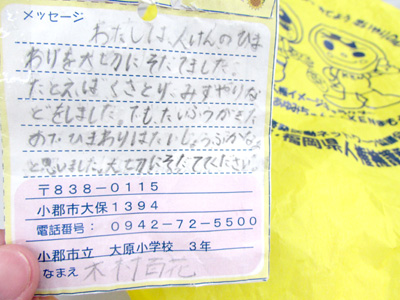 メッセージ
わたしは、人けんのひま
わりを大切にそだてました。
たとえば、くさとり、みずやりな
どをしました。でも、たいふうがきた
ので、ひまわりはだいじょうぶかな。
と思いました。大切にそだててください。
〒838-0115
小郡市大保1394
電話番号： 0942-72-5500
小郡市立 大原小学校 3年
なまえ 木村百花
福岡県人権